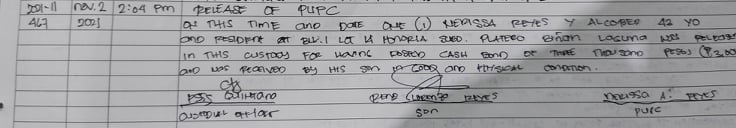 2021-11 nov. 2 2:04 pm RELEASE OF PUPC
467 2021 ON THIS TIME and DATE ONE (1) NERISSA REYES Y ALCOBER 42 YO
and RESIDENT AT BLK.1 LOT 14 HONORIA SUBD. PLATERO Biñan Laguna WAS RELEASE
IN THIS CUSTODY FOR HAVING POSTED CASH BOND OF THREE THOUSAND PESOS (₱3,00
and WAS RECEIVED BY HIS SON IN GOOD and PHYSICAL CONDITION.
RENE REYES nerissa A. REYES
CUSTODIAL officer son PUPC